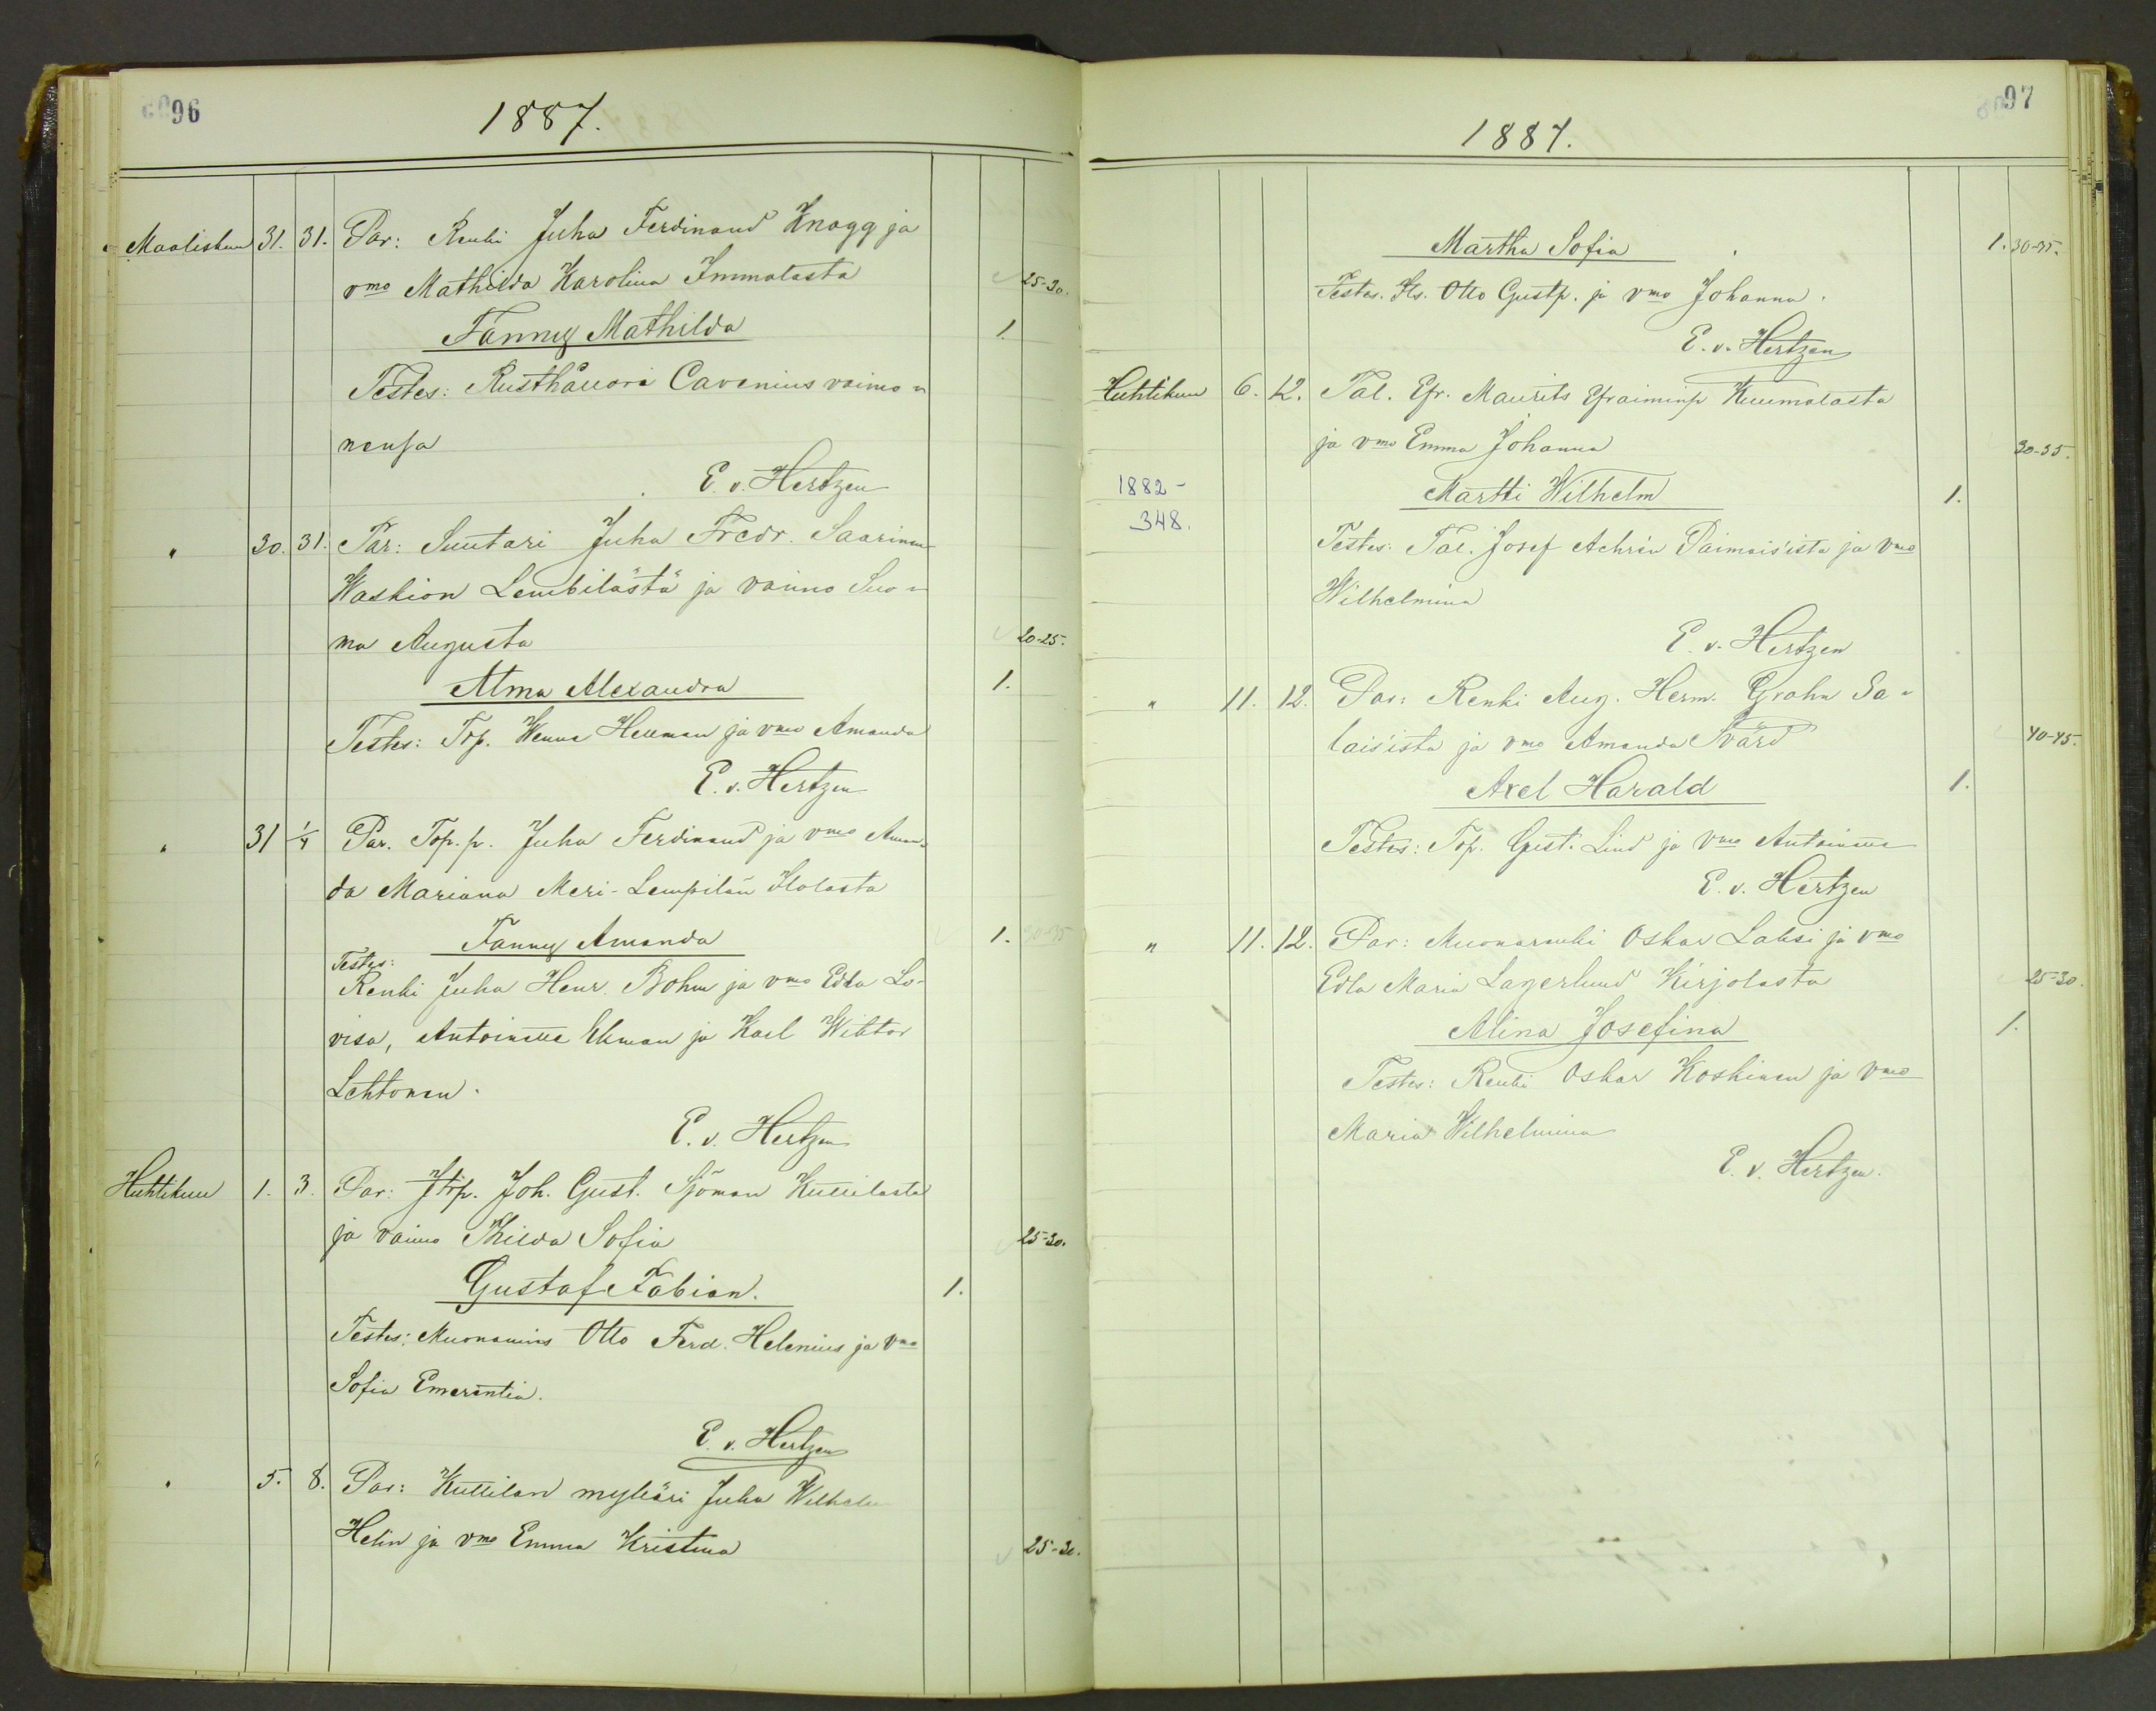 96
1887.
Maaliskuu 31. 31. Par: Renki Juha Ferdinand Knagg ja
vmo Mathilda Karolina Immalasta 25-30.
Fanny Mathilda 1.
Testes: Rusthållori Cavenius vaimo-
nensa
E. v. Hertzen
" 30. 31. Par: Suutari Juha Fredr. Saarinen
Waskion Lembilästä ja vaimo Suo-
ma Augusta 20-25.
Alma Alexandra 1.
Testes: Trp. Hellman ja vmo Amanda
E. v. Hertzen
" 31 1/4 Par. Top. p. Juha Ferdinand ja vmo Aman-
da Mariana Meri-Lempilän Ilolasta
Fanny Amanda 1. 30-35
Testes:
Renki Juha Henr. Bohm ja vmo Edla Lo-
visa, Antoinette Ekman ja Karl Wiktor
Lehtonen.
E. v. Hertzen
Huhtikuu 1. 3. Par: Itrp. Joh. Gust. Sjöman Kullilasta
ja vaimo Hilda Sofia 25-30.
Gustaf Fabian. 1.
Testes: Muonamies Otto Ferd. Helenius ja vmo
Sofia Emerentia.
E. v. Hertzen
" 5. 8. Par: Kullilan mylläri Juha Wilhelm
Helin ja vmo Emma Kristina 25-30.
97
1887.
Martha Sofia 1. 30-35.
Testes. Its. Otto Gustp. ja vmo Johanna.
E. v. Hertzen
Huhtikuu 6. 12. Tal. Efr. Maurits Efraiminp Kuumolasta
ja vmo Emma Johanna 30-35.
1882-
348.
Martti Wilhelm 1.
Testes: Tal. Josef Achrén Paimais'ista ja vmo
Wilhelmina
E. v. Hertzen
" 11. 12. Par: Renki Aug. Herm. Grohn Sa-
lais'ista ja vmo Amanda Svärd 40-45.
Axel Harald 1.
Testes: Top. Gust. Lind ja vmo Antoinette
E. v. Hertzen
" 11. 12. Par: Muonarenki Oskar Laksi ja vmo
Edla Maria Lagerlund Kirjolasta 25-30.
Alina Josefina 1.
Testes: Renki Oskar Koskinen ja vmo
Maria Wilhelmina
E. v. Hertzen.